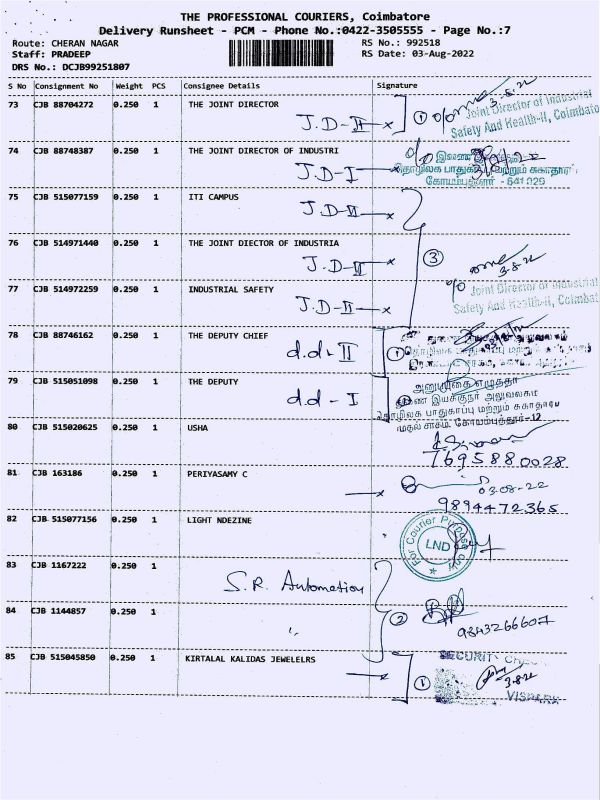 THE PROFESSIONAL COURIERS, Coimbatore
Delivery Runsheet - PCM - Phone No.:0422-3505555 - Page No.:7
Route: CHERAN NAGAR RS No.: 992518
Staff: PRADEEP RS Date: 03-Aug-2022
DRS No.: DCJB99251807
S No Consignment No Weight PCS Consignee Details Signature
73 CJB 88704272 0.250 1 THE JOINT DIRECTOR
J.D-II x 1 3-8-22
Joint Director of Industrial
Safety And Health-II, Coimbato
74 CJB 88748387 0.250 1 THE JOINT DIRECTOR OF INDUSTRI
J.D-I
கோயம்புத்தூர் - 641 029
75 CJB 515077159 0.250 1 ITI CAMPUS
J.D-II x
76 CJB 514971440 0.250 1 THE JOINT DIECTOR OF INDUSTRIA
J.D-II x 3 3-8-22
77 CJB 514972259 0.250 1 INDUSTRIAL SAFETY
J.D-II x
Joint Director of Industrial
Safety And Health-II, Coimbat
78 CJB 88746162 0.250 1 THE DEPUTY CHIEF
d.d-II 1
79 CJB 515051098 0.250 1 THE DEPUTY
d.d-I
இயக்குநர் அலுவலகம்
தொழிலக பாதுகாப்பு மற்றும் சுகாதார
கோயம்புத்தூர்-12
80 CJB 515020625 0.250 1 USHA
7695880028
81 CJB 163186 0.250 1 PERIYASAMY C
x 03-08-22
9894472365
82 CJB 515077156 0.250 1 LIGHT NDEZINE
For Courier Purpose Only
LND
83 CJB 1167222 0.250 1
S.R. Automation
84 CJB 1144857 0.250 1
2 9843266607
85 CJB 515045850 0.250 1 KIRTALAL KALIDAS JEWELELRS
x 1 3-8-22